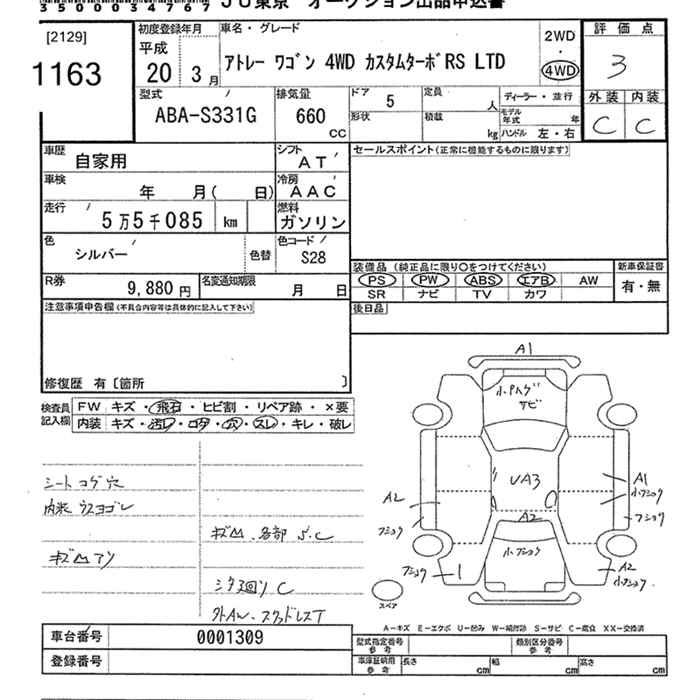 35000034767 JU東京 オークション出品申込書
[2129]
1163
初度登録年月
平成
20 3月
車名・グレード
アトレー ワゴン 4WD カスタムターボRS LTD
2WD
・
4WD
評価点
3
外装 内装
C C
型式
ABA-S331G
排気量
660
CC
ドア 5
形状
定員 人
積載 kg
ディーラー・並行
モデル年式 年
ハンドル 左・右
車歴 自家用
シフト AT
車検 年 月( 日)
冷房 AAC
走行 5万5千085 km
燃料 ガソリン
色 シルバー 色替
色コード S28
R券 9,880円
名変通知期限 月 日
セールスポイント(正常に機能するものに限ります)
装備品 (純正品に限り○をつけてください)
新車保証書
PS PW ABS エアB AW
SR ナビ TV カワ
有・無
後日品
注意事項申告欄(不具合内容等は具体的に記入して下さい)
修復歴 有〔箇所 〕
検査員記入欄
FW キズ・飛石・ヒビ割・リペア跡・×要
内装 キズ・汚レ・コゲ・穴・スレ・キレ・破レ
シートコゲ穴
内装ウスヨゴレ
キズ凹アリ
キズ凹、各部 S.C
シタ廻りC
外AW、スタッドレスT
A1
小Pハゲ
サビ
UA3
A2
小フショク
A2
フショク
フショク
A1
小フショク
フショク
A2
小フショク
スペア
A-キズ E-エクボ U-凹み W-補修跡 S-サビ C-腐食 XX-交換済
車台番号 0001309
登録番号
型式指定番号
参考
類別区分番号
参考
車庫証明用
参考
長さ cm
幅 cm
高さ cm